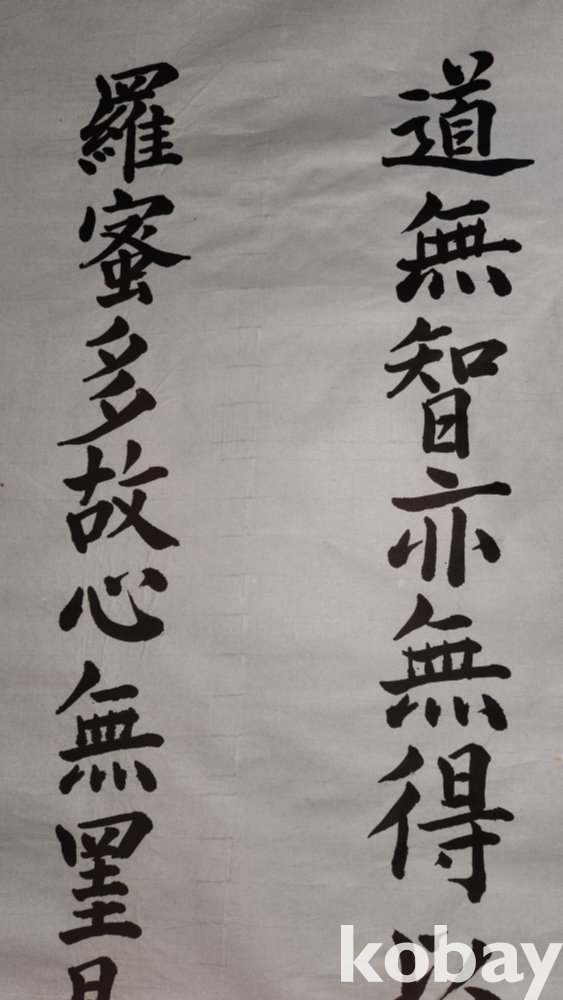 道無智亦無得
羅蜜多故心無罣
kobay